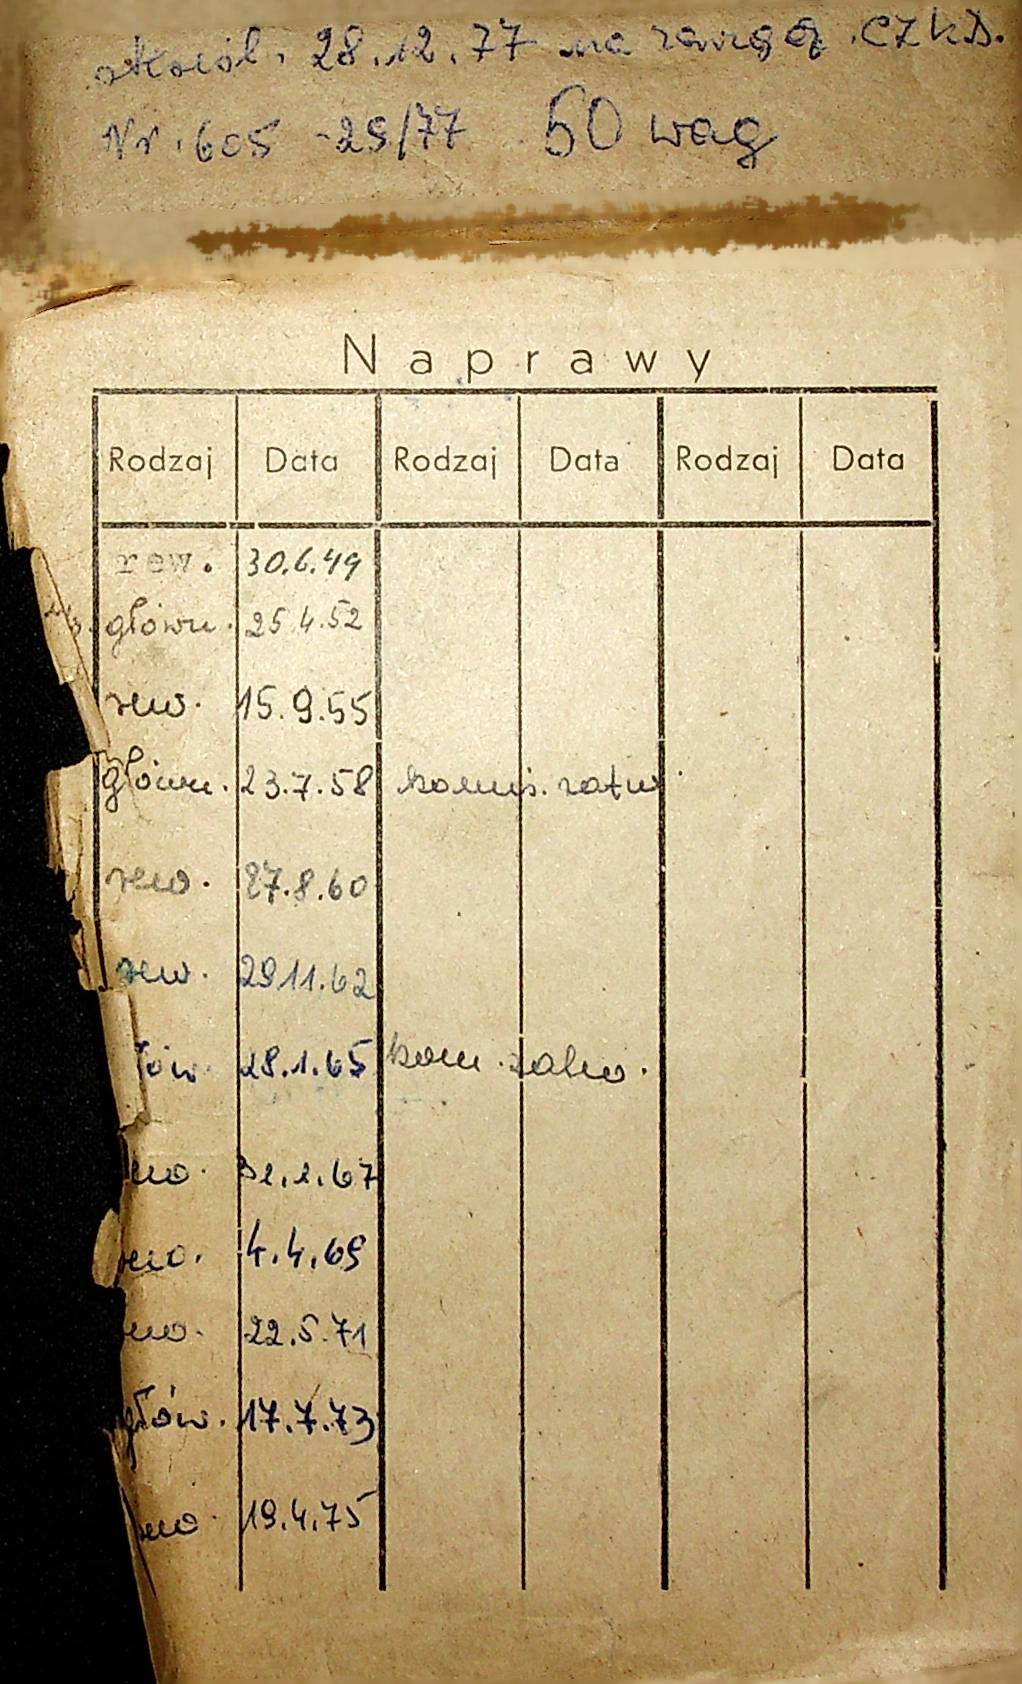 skreśl. 28.12.77 na rozrząd CZKD.
Nr. 605 -29/77 50 wag
Naprawy
Rodzaj Data Rodzaj Data Rodzaj Data
rew. 30.6.49
główn. 25.4.52
rew. 15.9.55
główn. 23.7.58 komis.
rew. 27.8.60
rew. 29.11.62
łów 28.1.65 kom.
ew. .67
ew. 4.4.69
ew. 22.5.71
głów. 17.7.73
ew. 19.4.75